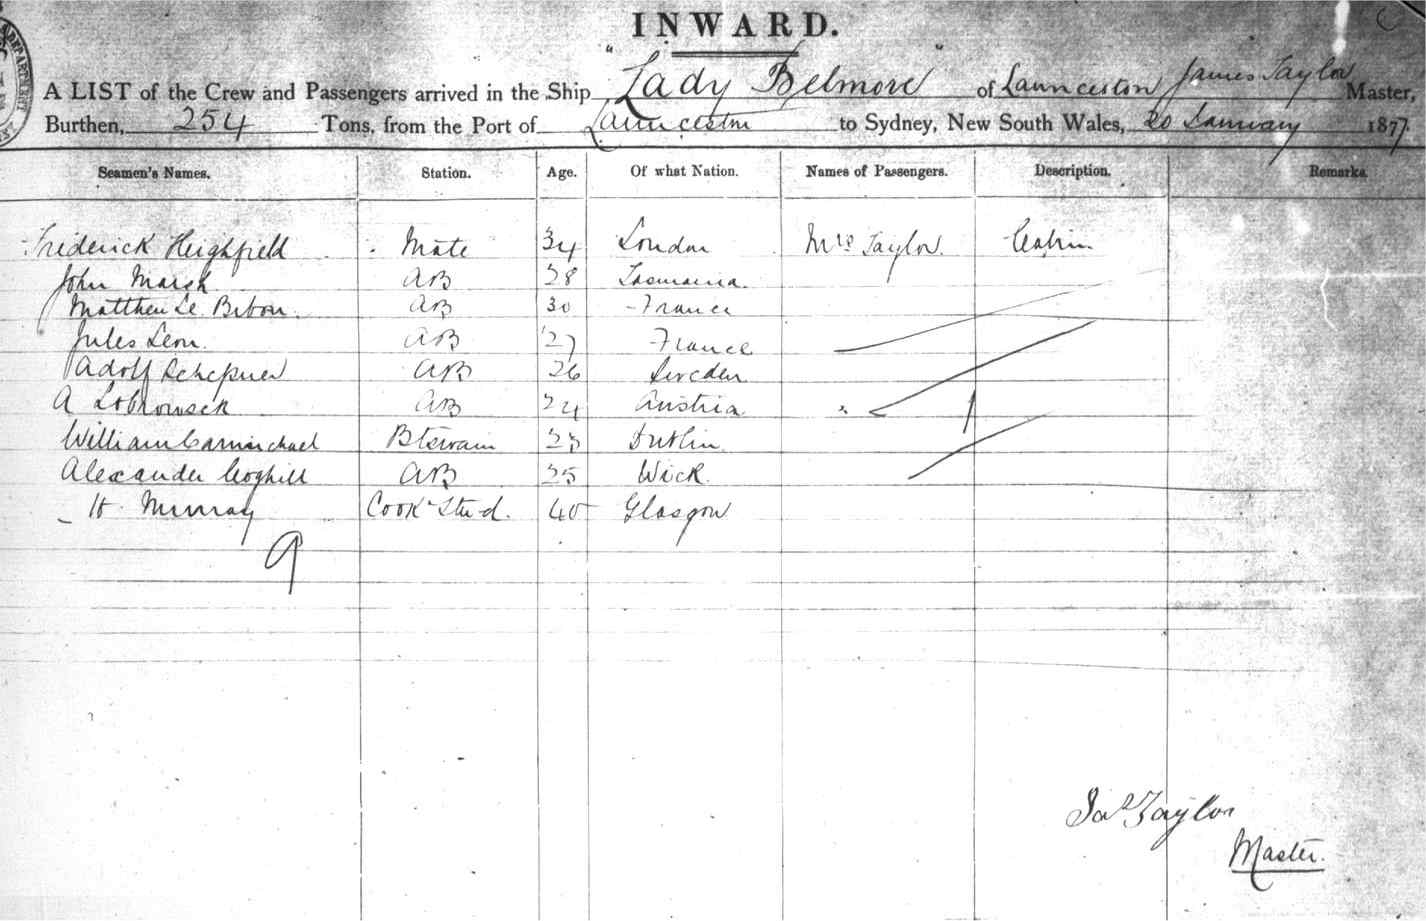 INWARD.
A LIST of the Crew and Passengers arrived in the Ship "Lady Belmore" of Launceston James Taylor Master,
Burthen, 254 Tons, from the Port of Launceston to Sydney, New South Wales, 20 January 1877.
Seamen's Names. Station. Age. Of what Nation. Names of Passengers. Description. Remarks.
Frederick Heighfield Mate 34 London Mrs Taylor. Cabin
John Marsh AB 28 Tasmania.
Matthew Le AB 30 France
Jules Leon. AB 27 France
Adolf AB 26 Sweden
A AB 24 Austria
William Carmichael Btswain 23 Dublin.
Alexander Coghill AB 25 Wick.
H. Murray Cook & Stu-d. 40 Glasgow
9
1
Jas Taylor
Master.